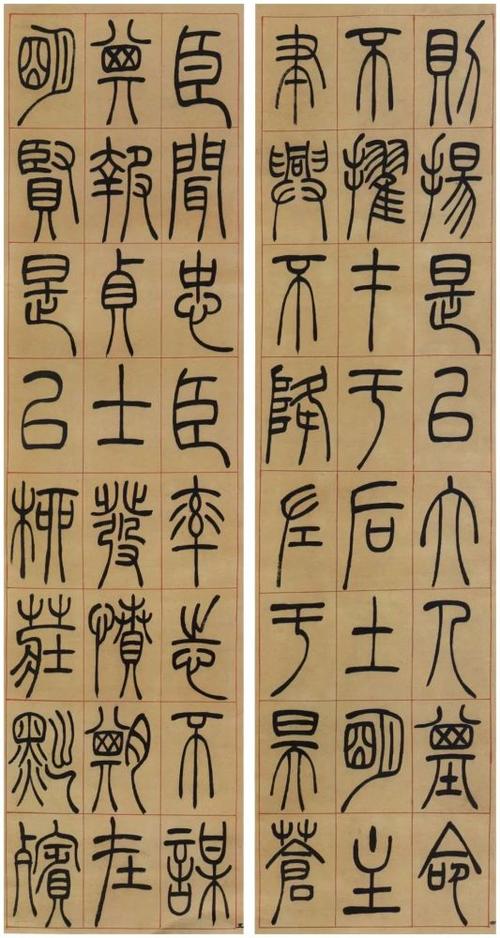 則揚是以大人基命
不擢才于后土明主
聿興不降左于昊蒼
臣聞忠臣率志不謀
其報貞士發憤期在
明賢是以柳莊黜殯